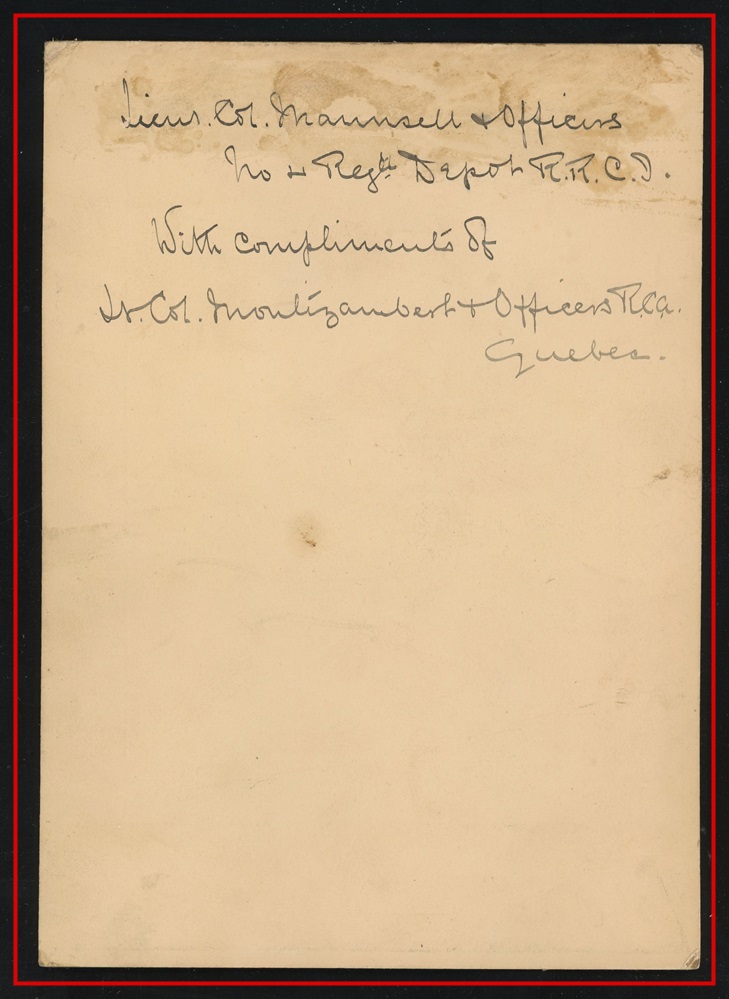 Lieut. Col. Maunsell & Officers
No 4 Regtl Depot R.R.C.I.
With compliments of
Lt. Col. Montizambert & Officers R.C.A.
Quebec.